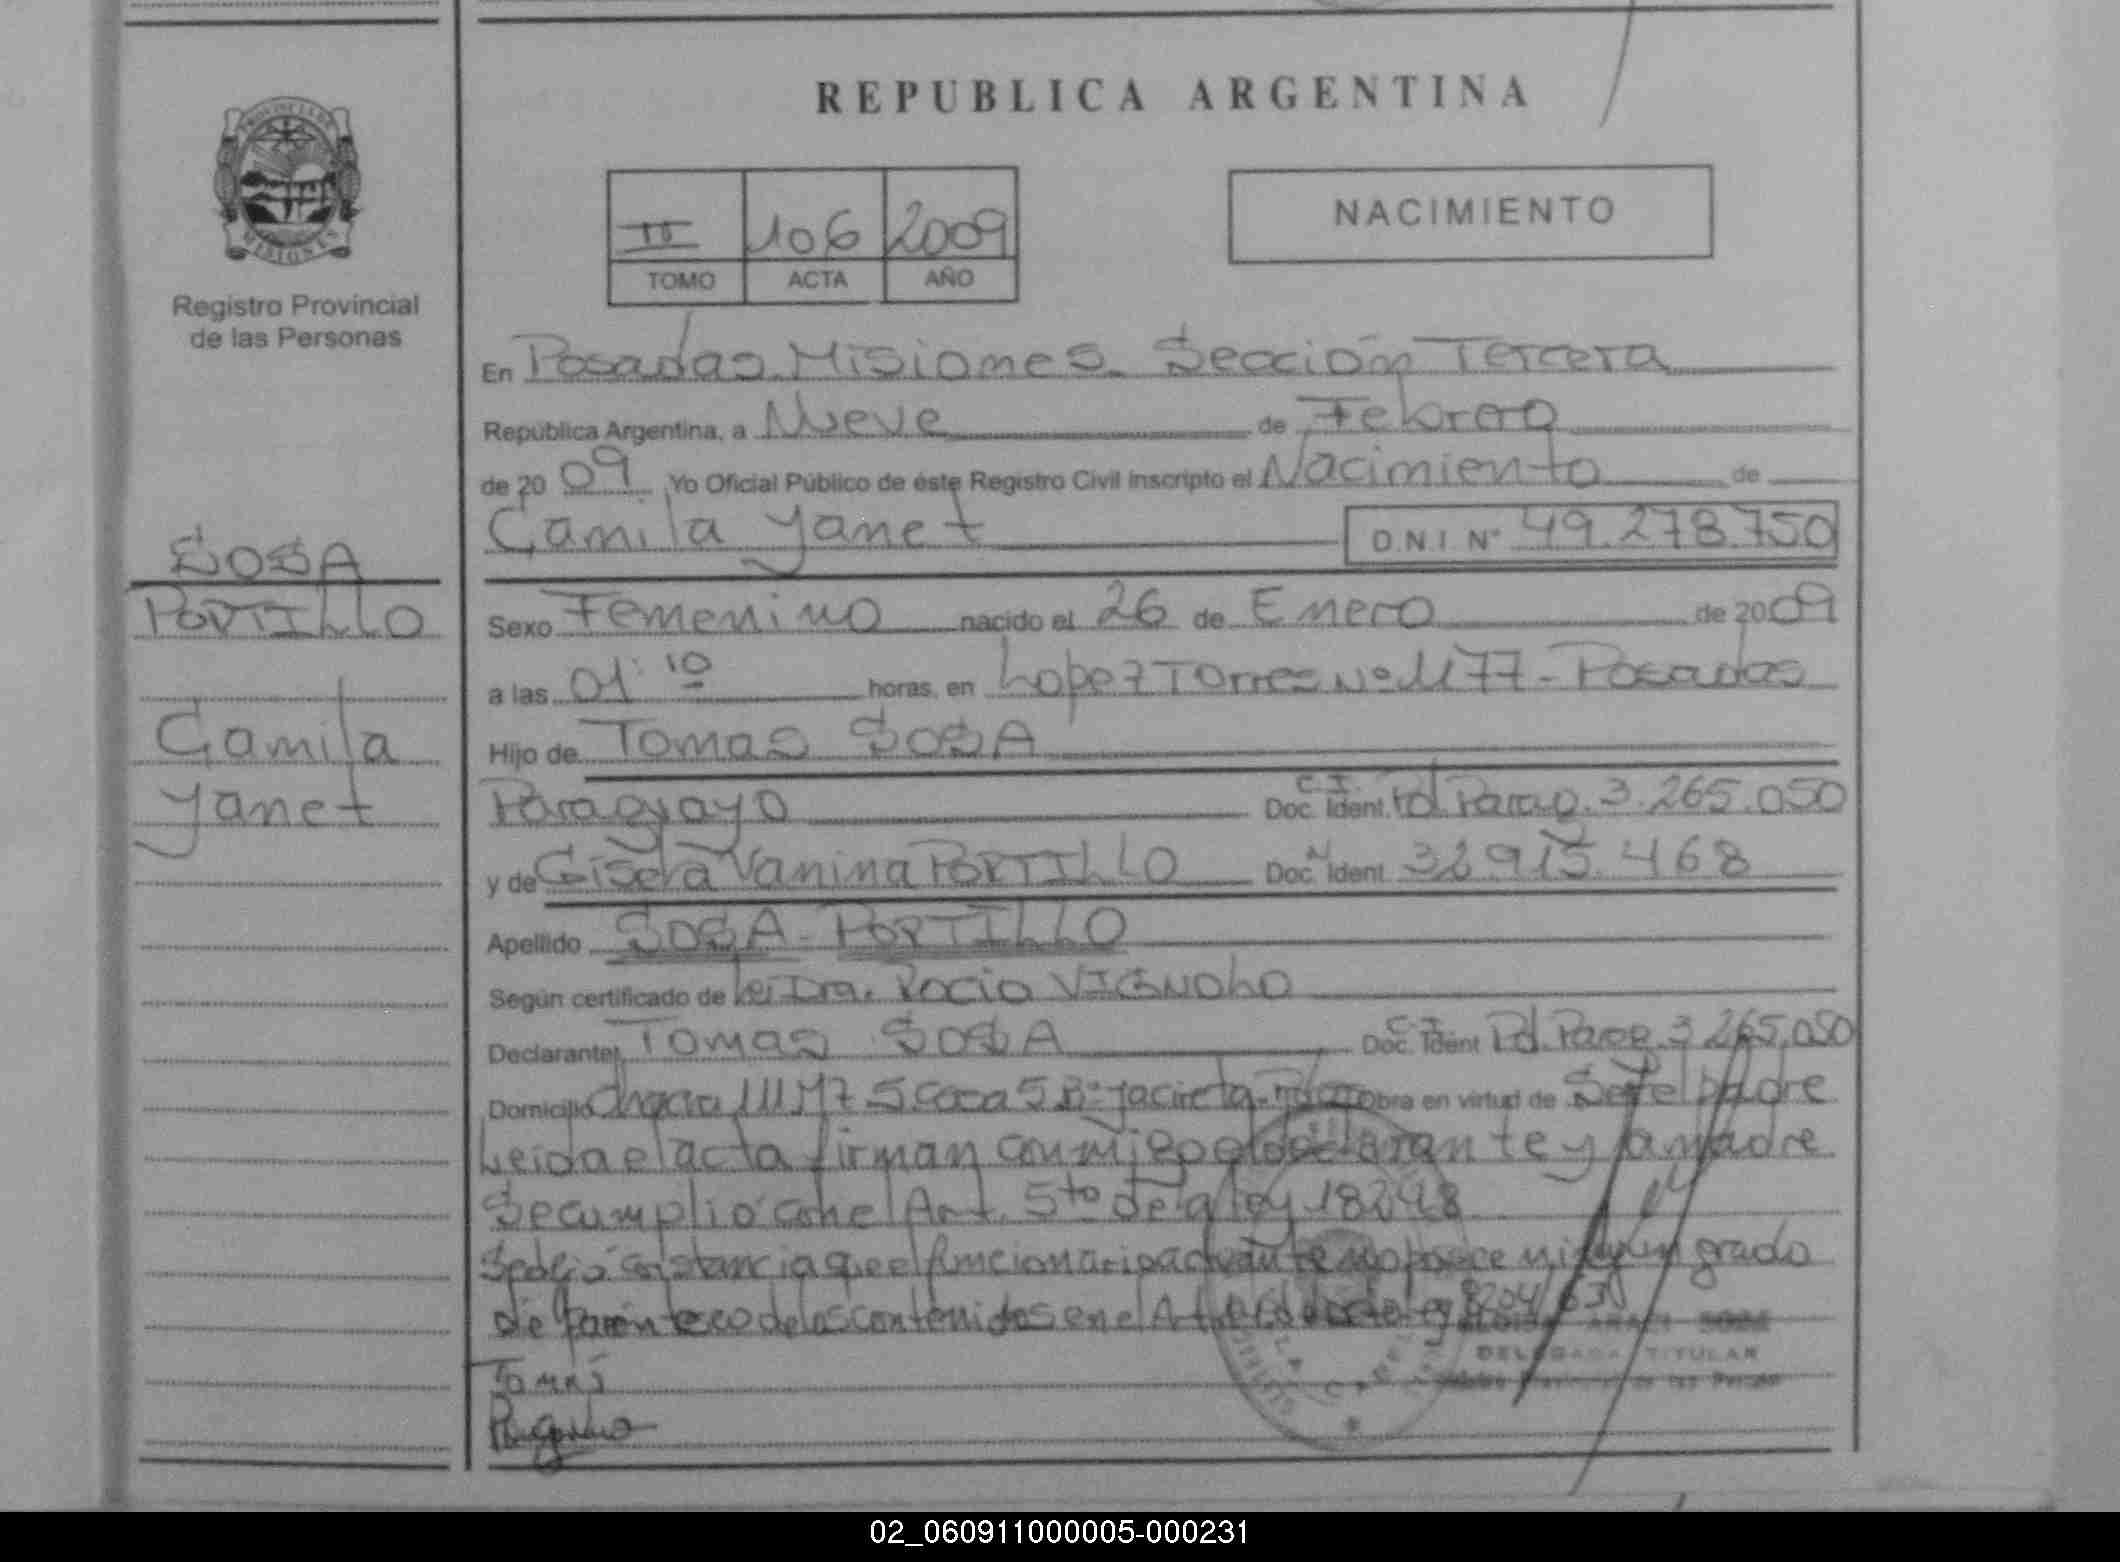 REPUBLICA ARGENTINA
PROVINCIA DE
MISIONES
Registro Provincial
de las Personas
II 106 2009
TOMO ACTA AÑO
NACIMIENTO
SOSA
PORTILLO
Camila
Yanet
En Posadas Misiones. Sección Tercera
República Argentina, a Nueve de Febrero
de 20 09 Yo Oficial Público de éste Registro Civil Inscripto el Nacimiento de
Camila Yanet D.N.I Nº 49.278.750
Sexo Femenino nacido el 26 de Enero de 2009
a las 01:10 horas, en Lopez Torres Nº 1177 - Posadas
Hijo de Tomas SOSA
Paraguayo Doc. Ident. C.I. Pol Parag. 3.265.050
y de Gisela Vanina PORTILLO Doc. Ident 32.915.468
Apellido SOSA - PORTILLO
Según certificado de la Dra. Rocio VIGNOLO
Declarante Tomas SOSA Doc. Ident C.I. Pol. Parag. 3.265.050
Domicilio Chacra 111 Mz 5 Casa 5 Bº Yacireta - Obra en virtud de Ser el padre
Leida el acta firman conmigo el declarante y la madre
Se cumplió con el Art. 5to de la ley 18248
Se dejó constancia que el funcionario actuante no posee ningún grado
de parentesco de los contenidos en el Art.
DELEGADA TITULAR
Tomas
02_060911000005-000231